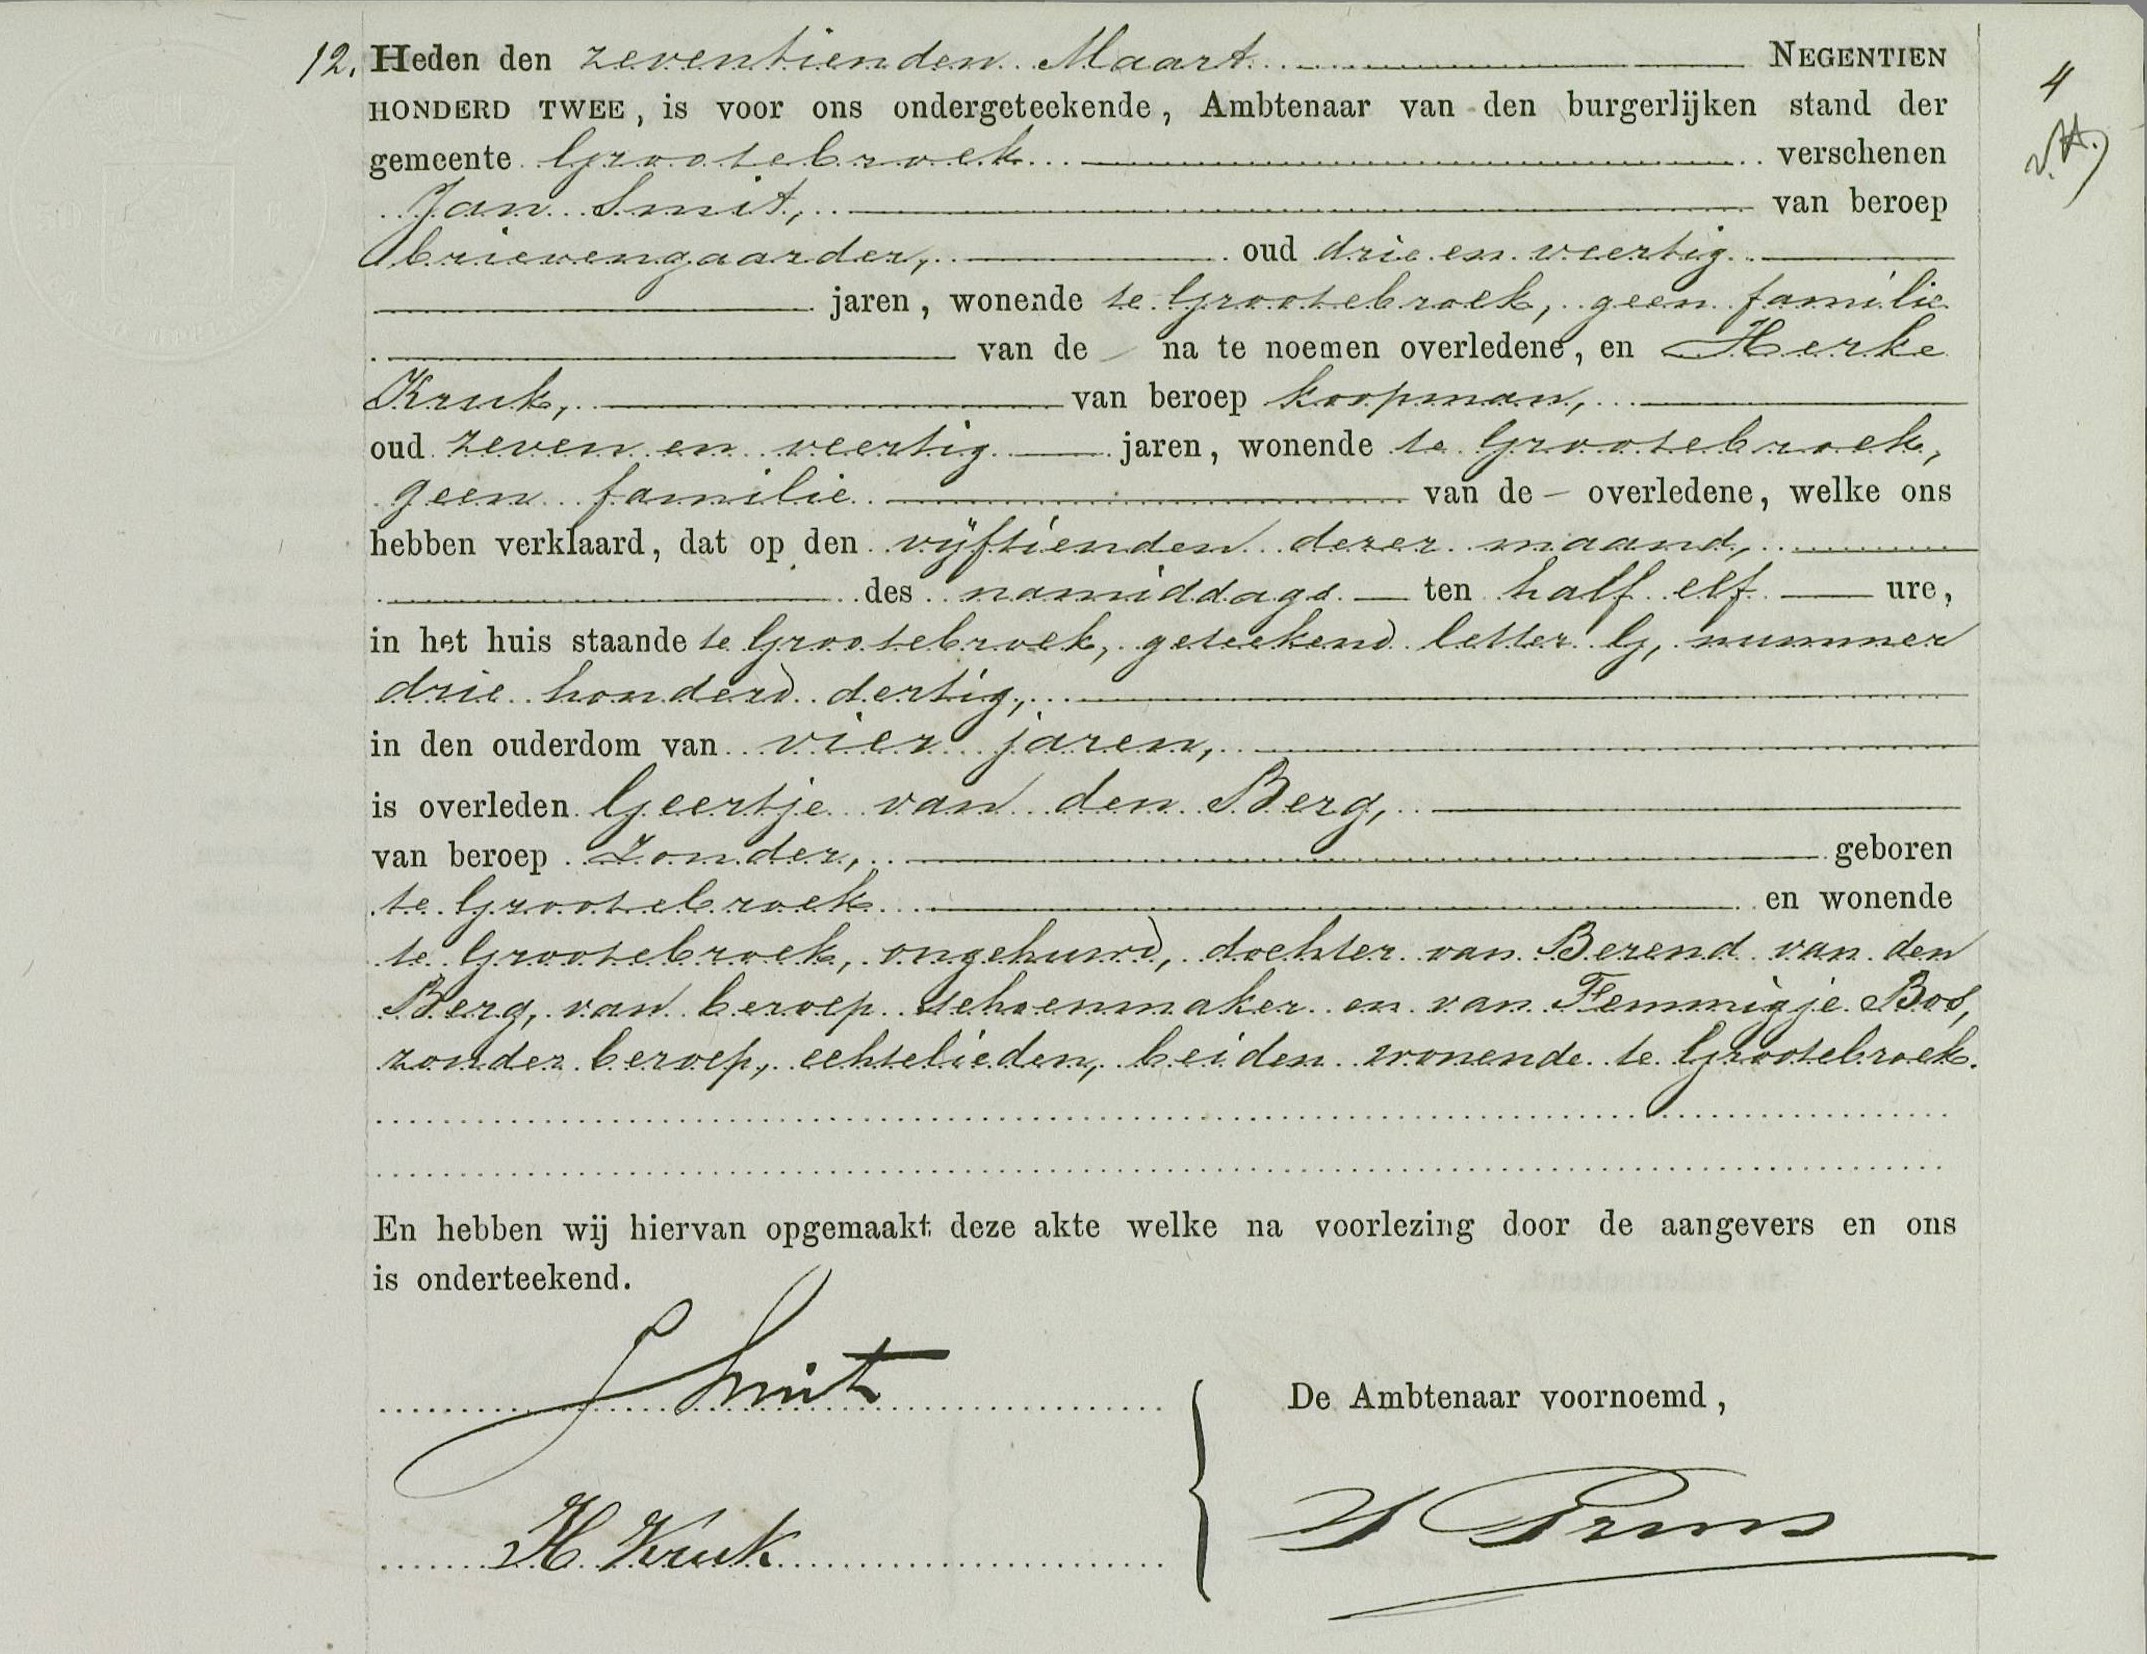 12. Heden den zeventienden Maart NEGENTIEN
HONDERD TWEE, is voor ons ondergeteekende, Ambtenaar van den burgerlijken stand der
gemeente Grootebroek verschenen
Jan Smit, van beroep
brievengaarder, oud drie en veertig
jaren, wonende te Grootebroek, geen familie
van de na te noemen overledene, en Herke
Kruk, van beroep koopman,
oud zeven en veertig jaren, wonende te Grootebroek,
geen familie van de overledene, welke ons
hebben verklaard, dat op den vijftienden dezer maand,
des namiddags ten half elf ure,
in het huis staande te Grootebroek, geteekend letter G, nummer
drie honderd dertig,
in den ouderdom van vier jaren,
is overleden Geertje van den Berg,
van beroep Zonder, geboren
te Grootebroek en wonende
te Grootebroek, ongehuwd, dochter van Berend van den
Berg, van beroep schoenmaker en van Femmigje Bos,
zonder beroep, echtelieden, beiden wonende te Grootebroek.
En hebben wij hiervan opgemaakt deze akte welke na voorlezing door de aangevers en ons
is onderteekend.
J Smit
De Ambtenaar voornoemd,
H Kruk
4